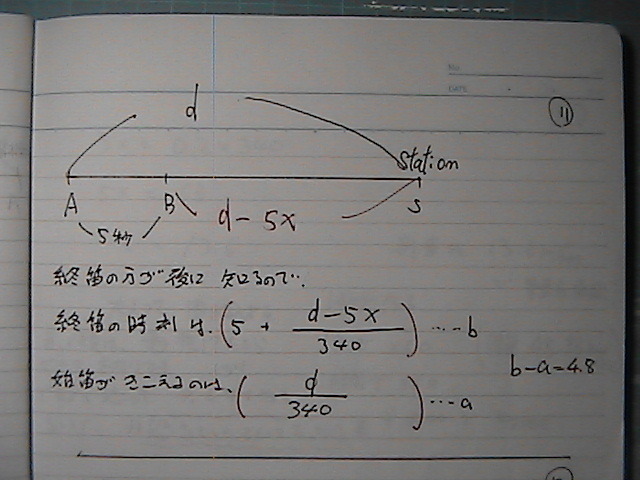 No.
DATE
11
d
Station
A B S
5秒 d-5x
終笛の方が後に知るので、
終笛の時刻は、(5 + (d-5x)/340) …b
b-a=4.8
始笛がきこえるのは、(d/340) …a